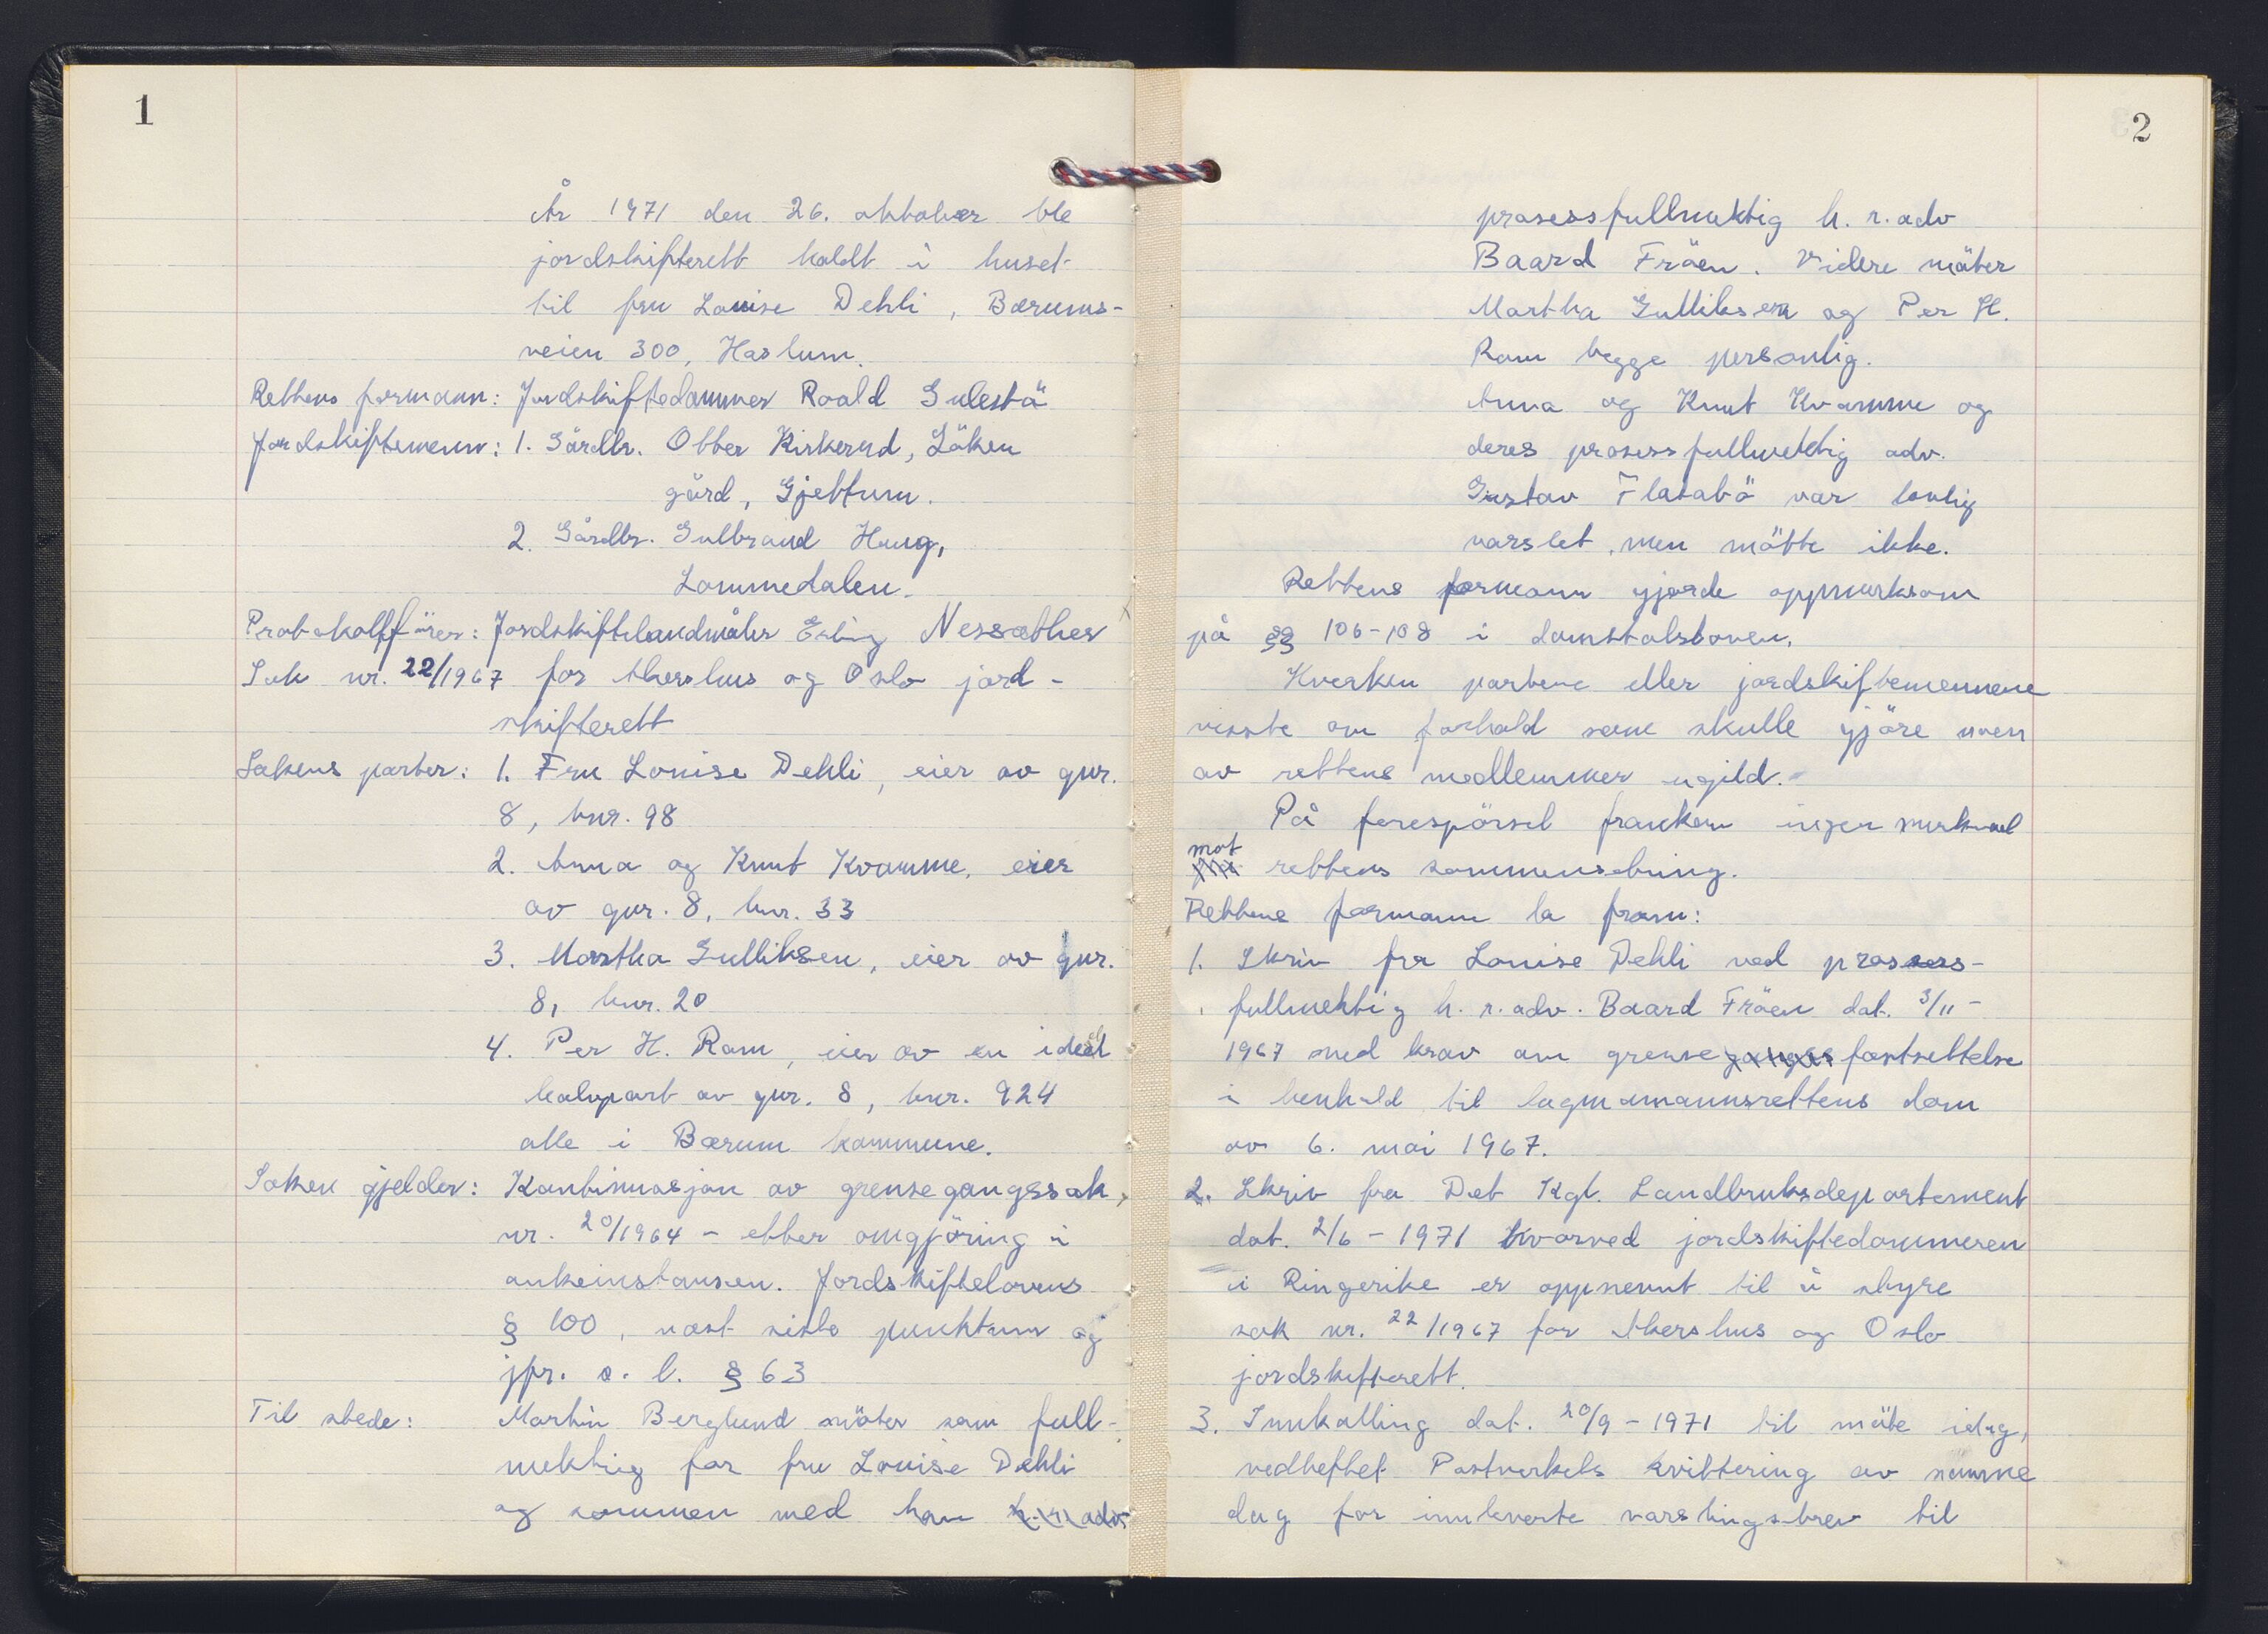 1
År 1971 den 26. oktober ble
jordskifterett holdt i huset
til fru Louise Dehli, Bærums-
veien 300, Haslum.
Rettens formann: Jordskiftedommer Roald Gulestö
Jordskiftemenn: 1. Gårdbr. Otter Kirkerud, Löken
gård, Gjettum.
2. Gårdbr. Gulbrand Haug,
Lommedalen.
Protokollförer: Jordskiftelandmåler Erling Nessæther
Sak nr. 22/1967 for Akershus og Oslo jord-
skifterett
Sakens parter: 1. Fru Louise Dehli, eier av gnr.
8, bnr. 98
2. Anna og Knut Kvamme, eier
av gnr. 8, bnr. 33
3. Martha Gulliksen, eier av gnr.
8, bnr. 20
4. Per H. Ram, eier av en ideel
halvpart av gnr. 8, bnr. 924
alle i Bærum kommune.
Saken gjelder: Kontinuasjon av grensegangssak,
nr. 20/1964 - etter omgjöring i
ankeinstansen. Jordskiftelovens
§ 100, nest siste punktum og
jfr. s. l. § 63
Til stede: Martin Berglund möter som full-
mektig for fru Louise Dehli
og sammen med ham h. r. adv
2
prosessfullmektig h. r. adv
Baard Fröen. Videre möter
Martha Gulliksen og Per H.
Ram begge personlig.
Anna og Knut Kvamme og
deres prosessfullmektig adv.
Gustav Flatabö var lovlig
varslet, men mötte ikke.
Rettens formann gjorde oppmerksom
på §§ 106-108 i domstolsloven.
Hverken partene eller jordskiftemennene
visste om forhold som skulle gjöre noen
av rettens medlemmer ugild.
På forespörsel framkom ingen merknad
mot
rettens sammensetning.
Rettens formann la fram:
1. Skriv fra Louise Dehli ved prosess-
fullmektig h. r. adv. Baard Fröen dat. 3/11 -
1967 med krav om grensegangs fastsettelse
i henhold til lagmannsrettens dom
av 6. mai 1967.
2. Skriv fra Det Kgl. Landbruksdepartement
dat. 2/6 - 1971 hvorved jordskiftedommeren
i Ringerike er oppnevnt til å styre
sak nr. 22/1967 for Akershus og Oslo
jordskifterett.
3. Innkalling dat. 20/9 - 1971 til möte idag,
vedheftet Postverkets kvittering av samme
dag for innleverte varslingsbrev til